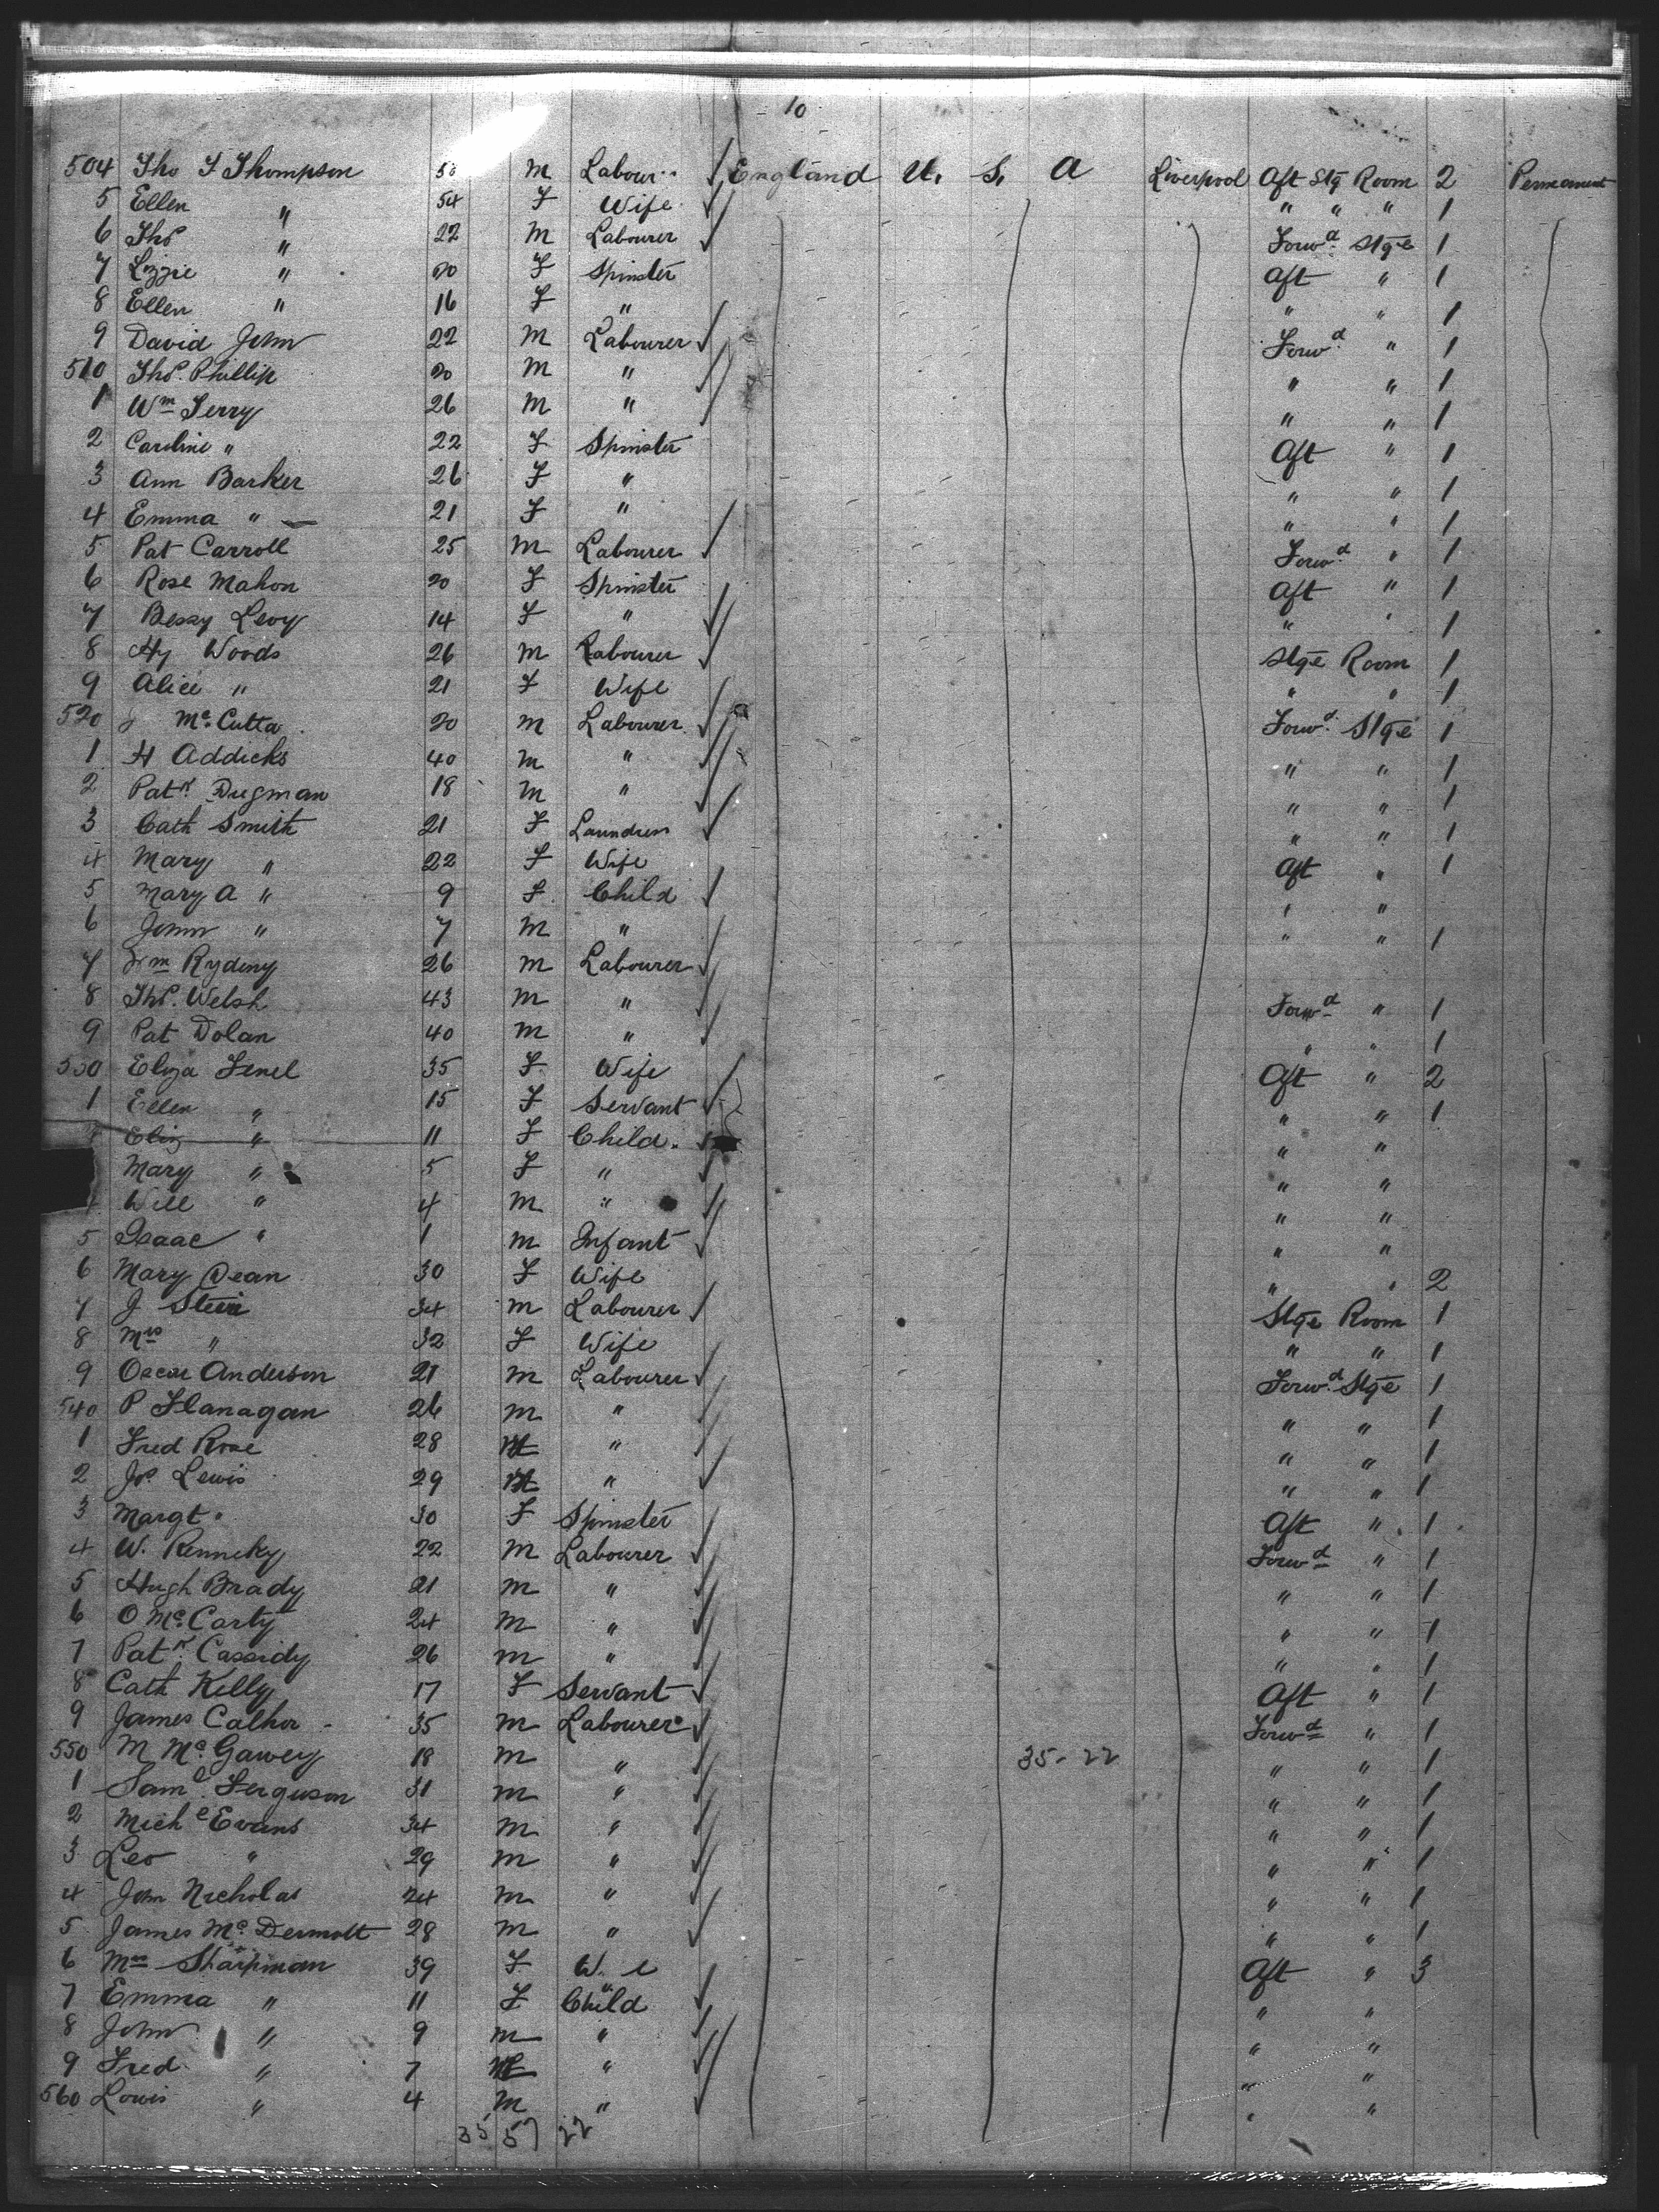 10
504 Tho T Thompson 50 M Labour England U. S. A Liverpool Aft Stg Room 2 Permanent
5 Ellen " 54 F Wife " " " 1
6 Thos " 22 M Labourer Forwd Stge 1
7 Lizzie " 20 F Spinster Aft " 1
8 Ellen " 16 F " " " 1
9 David John 22 M Labourer Forwd " 1
510 Thos. Phillip 20 M " " " 1
1 Wm Terry 26 M " " " 1
2 Caroline " 22 F Spinster Aft " 1
3 Ann Barker 26 F " " " 1
4 Emma " 21 F " " " 1
5 Pat Carroll 25 M Labourer Forwd " 1
6 Rose Mahon 20 F Spinster Aft " 1
7 Bessy Levy 14 F " " " 1
8 Hy Woods 26 M Labourer Stge Room 1
9 Alice " 21 F Wife " " 1
520 J McCutta 20 M Labourer Forwd Stge 1
1 H Addicks 40 M " " " 1
2 Patk Dugman 18 M " " " 1
3 Cath Smith 21 F Laundress " " 1
4 Mary " 22 F Wife Aft " 1
5 Mary A " 9 F Child " "
6 John " 7 M " " " 1
7 Wm Rydeny 26 M Labourer
8 Thos. Welsh 43 M " Forwd " 1
9 Pat Dolan 40 M " " " 1
530 Eliza Fenel 35 F Wife Aft " 2
1 Ellen " 15 F Servant " " 1
Eliz " 11 F Child. " "
Mary " 5 F " " "
4 Will " 4 M " " "
5 Isaac " 1 M Infant " "
6 Mary Dean 30 F Wife " " 2
7 J Stein 34 M Labourer Stge Room 1
8 Mrs " 32 F Wife " " 1
9 Oscar Anderson 21 M Labourer Forwd Stge 1
540 P Flanagan 26 M " " " 1
1 Fred Rose 28 M " " " 1
2 Jos. Lewis 29 M " " " 1
3 Margt " 30 F Spinster Aft " 1
4 W. Renneky 22 M Labourer Forwd " 1
5 Hugh Brady 21 M " " " 1
6 O McCarty 24 M " " " 1
7 Patk Cassidy 26 M " " " 1
8 Cath Kelly 17 F Servant Aft " 1
9 James Calhor 35 M Labourer Forwd " 1
550 M McGawey 18 M " 35-22 " " 1
1 Saml Ferguson 31 M " " " 1
2 Miche Evans 34 M " " " 1
3 Leo " 29 M " " " 1
4 John Nicholas 24 M " " " 1
5 James McDermott 28 M " " " 1
6 Mrs Sharpman 39 F W e Aft " 3
7 Emma " 11 F Child " "
8 John " 9 M " " "
9 Fred " 7 M " " "
560 Louis " 4 M " " "
35 57 22